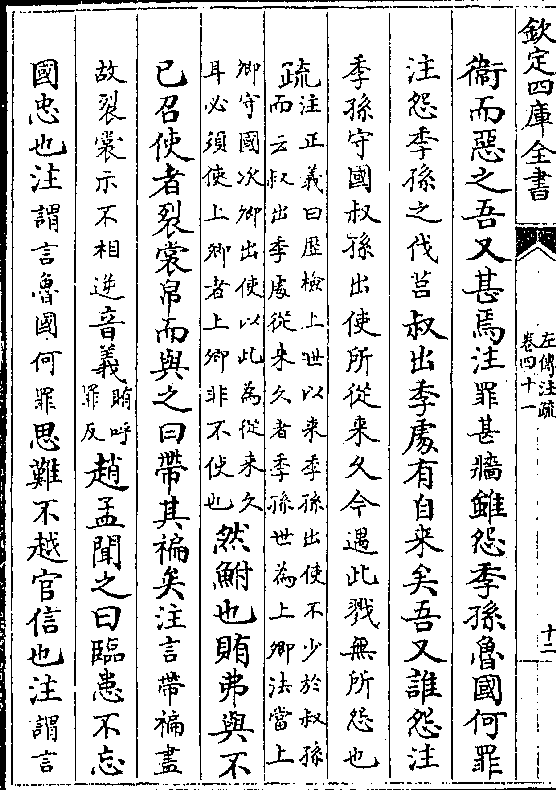 欽定四庫全書
左傳注疏
卷四十一
十二
衞而惡之吾又甚焉注罪甚牆雖怨季孫魯國何罪
注怨季孫之伐莒叔出季處有自来矣吾又誰怨注
季孫守國叔孫出使所從来久今遇此戮無所怨也
疏注正義曰歴檢上世以来季孫出使不少於叔孫
而云叔出季處從来久者季孫世為上卿法當上
卿守國次卿出使以此為從来久
耳必須使上卿者上卿非不使也然鮒也賄弗與不
已召使者裂裳帛而與之曰帶其褊矣注言帶褊盡
故裂裳示不相逆音義賄呼
罪反趙孟聞之曰臨患不忘
國忠也注謂言魯國何罪思難不越官信也注謂言